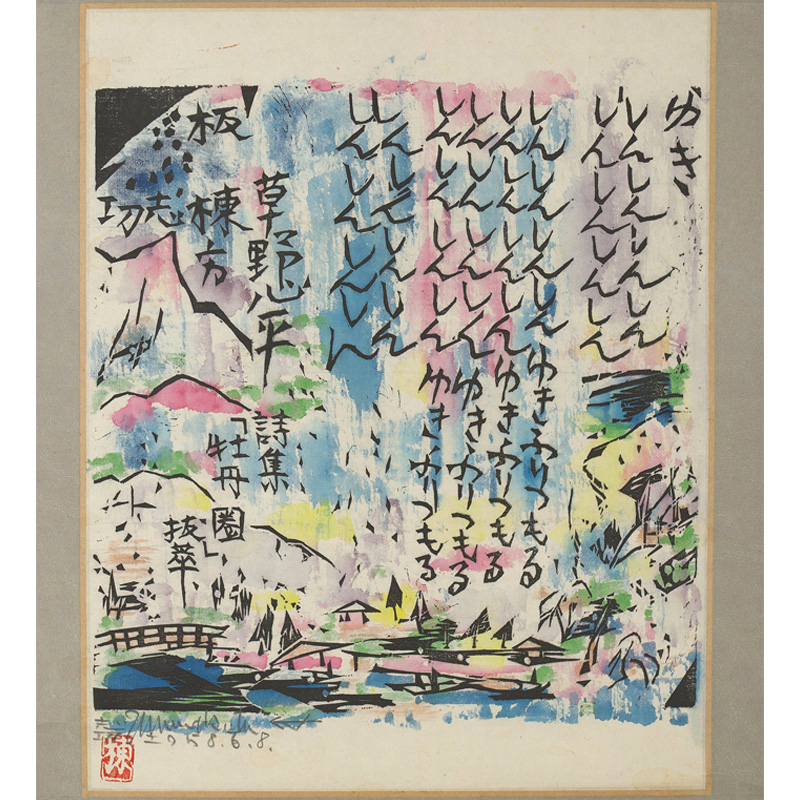 ゆき
しんしんしんしん
しんしんしんしん
しんしんしんしんゆきふりつもる
しんしんしんしんゆきふりつもる
しんしんしんしんゆきふりつもる
しんしんしんしんゆきふりつもる
しんしんしんしん
しんしんしんしん
草野心平
詩集
「牡丹圏」
抜萃
板 棟方
志功
1958.6.8.
棟